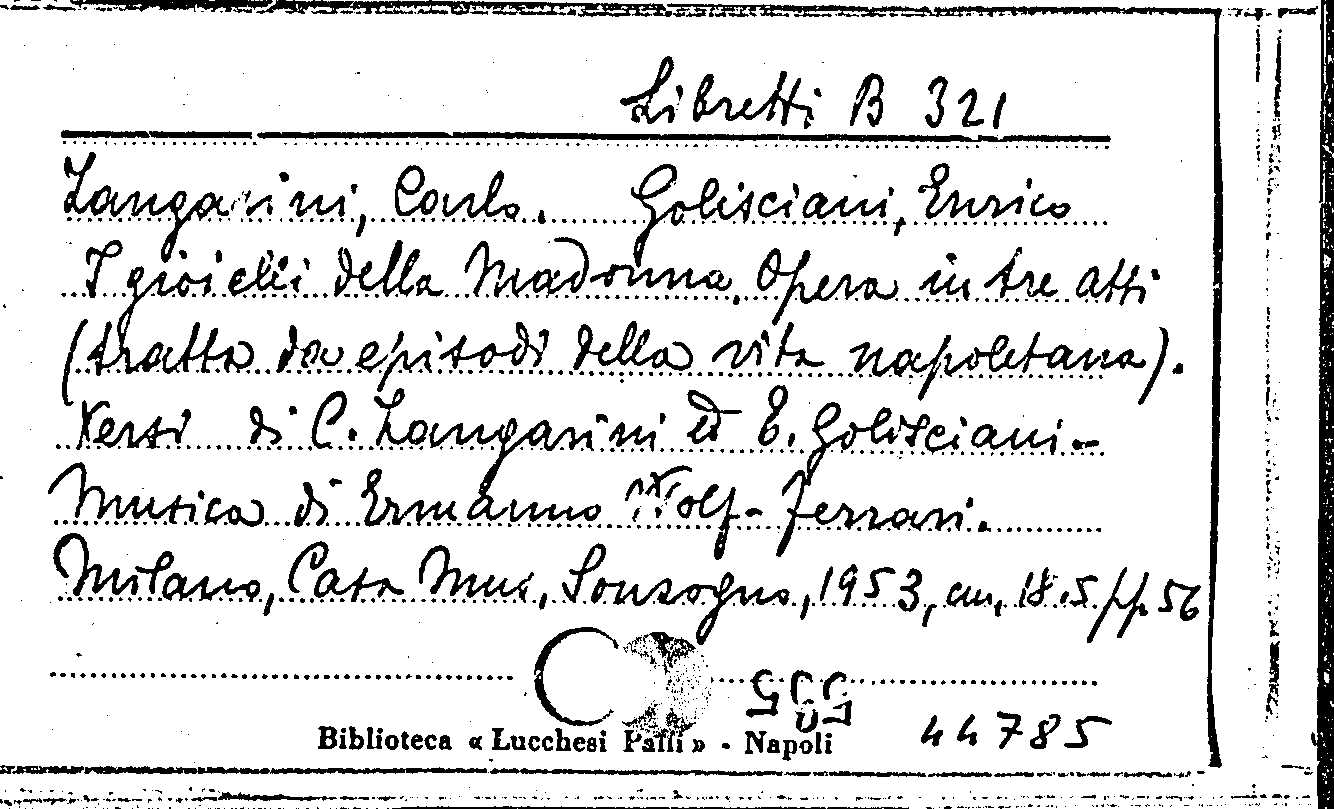 Libretti B 321
Zangarini, Carlo. Golisciani, Enrico
I gioielli della Madonna. Opera in tre atti
(tratta da episodi della vita napoletana).
Versi di C. Zangarini ed E. Golisciani.-
Musica di Ermanno Wolf-Ferrari.
Milano, Casa Mus. Sonzogno, 1953, cm. 18.5 pp. 56
44785
Biblioteca « Lucchesi Palli » - Napoli